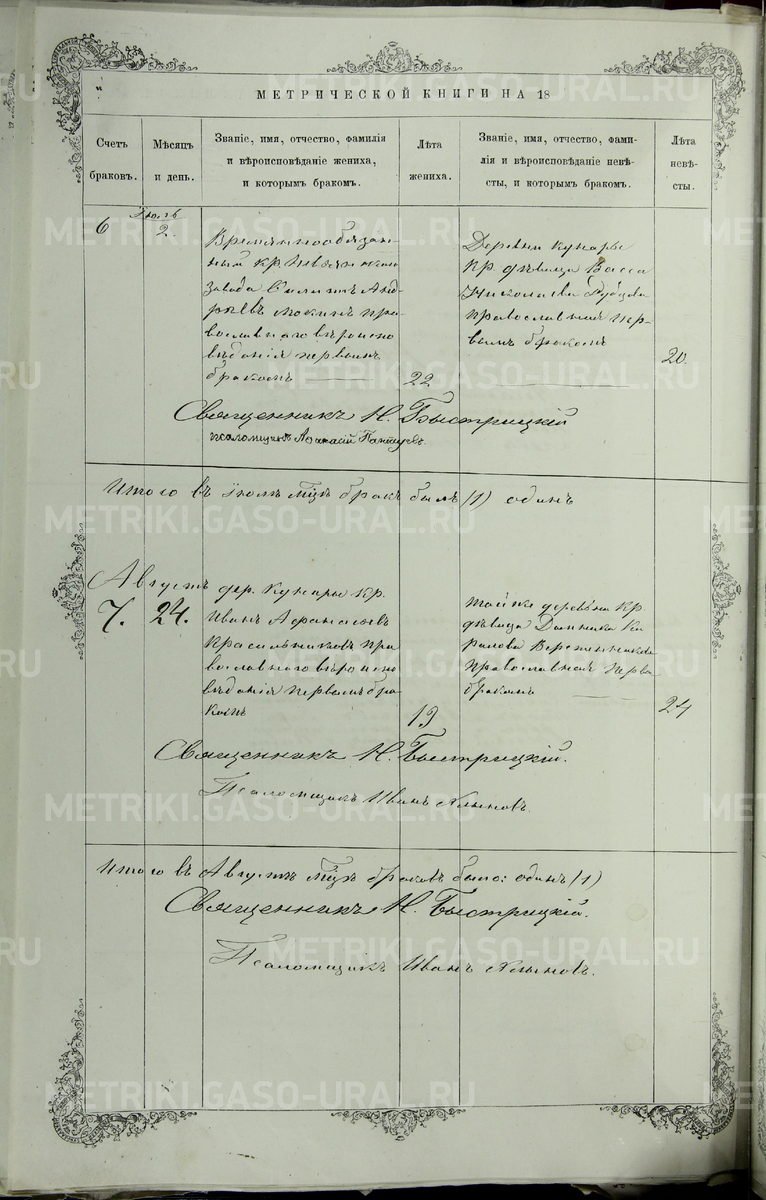 МЕТРИЧЕСКОЙ КНИГИ НА 18
Счетъ браковъ.
Мѣсяцъ и день.
Званіе, имя, отчество, фамилія
и вѣроисповѣданіе жениха,
и которымъ бракомъ.
Лѣта жениха.
Званіе, имя, отчество, фами-
лія и вѣроисповѣданіе невѣ-
сты, и которымъ бракомъ.
Лѣта невѣ-
сты.
6
Іюль
2.
Временнообязан-
ный кр.
завода Анд-
реевъ Мокинъ пра-
вославнаго вѣроиспо
вѣданія первымъ
бракомъ
22
Деревни Кунары
кр. дѣвица Васса
Николаева Рубцова
православная пер-
вымъ бракомъ
20.
Священникъ Н. Быстрицкій
псаломщикъ Афанасій Пантуевъ.
Итого въ Іюлѣ мцѣ бракъ былъ (1) одинъ
Августъ
7.
24.
дер. Кунары кр.
Иванъ Афанасьевъ
Красильниковъ пра
вославнаго вѣроиспо
вѣданія первымъ бра-
комъ
19
той же деревни кр.
дѣвица Домника Ки
рилова
православная перво
бракомъ
24
Священникъ Н. Быстрицкій.
Псаломщикъ Иванъ
Итого въ Августѣ мцѣ браковъ было: одинъ (1)
Священникъ Н. Быстрицкій.
Псаломщикъ Иванъ
METRIKI.GASO-URAL.RU